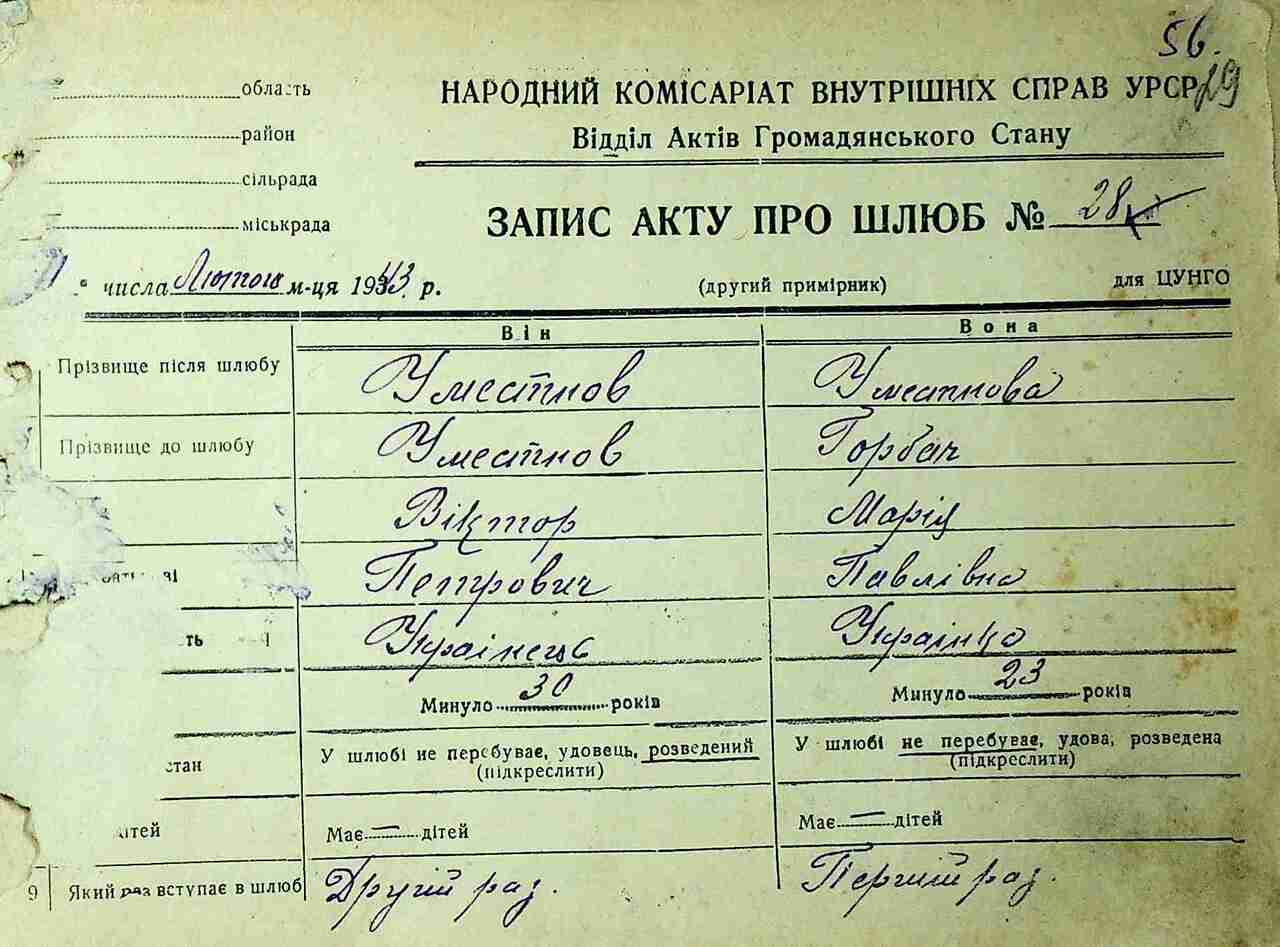 56.
29
область
район
сільрада
міськрада
НАРОДНИЙ КОМІСАРІАТ ВНУТРІШНІХ СПРАВ УРСР
Відділ Актів Громадянського Стану
ЗАПИС АКТУ ПРО ШЛЮБ № 28
числа Лютого м-ця 1943 р.
(другий примірник)
для ЦУНГО
Він
Вона
Прізвище після шлюбу Уместнов Уместнова
Прізвище до шлюбу Уместнов Горбач
Віктор Марія
Петрович Павлівна
ть Українець Українка
Минуло 30 років Минуло 23 років
стан У шлюбі не перебуває, удовець, розведений У шлюбі не перебуває, удова, розведена
(підкреслити) (підкреслити)
ітей Має — дітей Має — дітей
9 Який раз вступає в шлюб Другий раз. Перший раз.